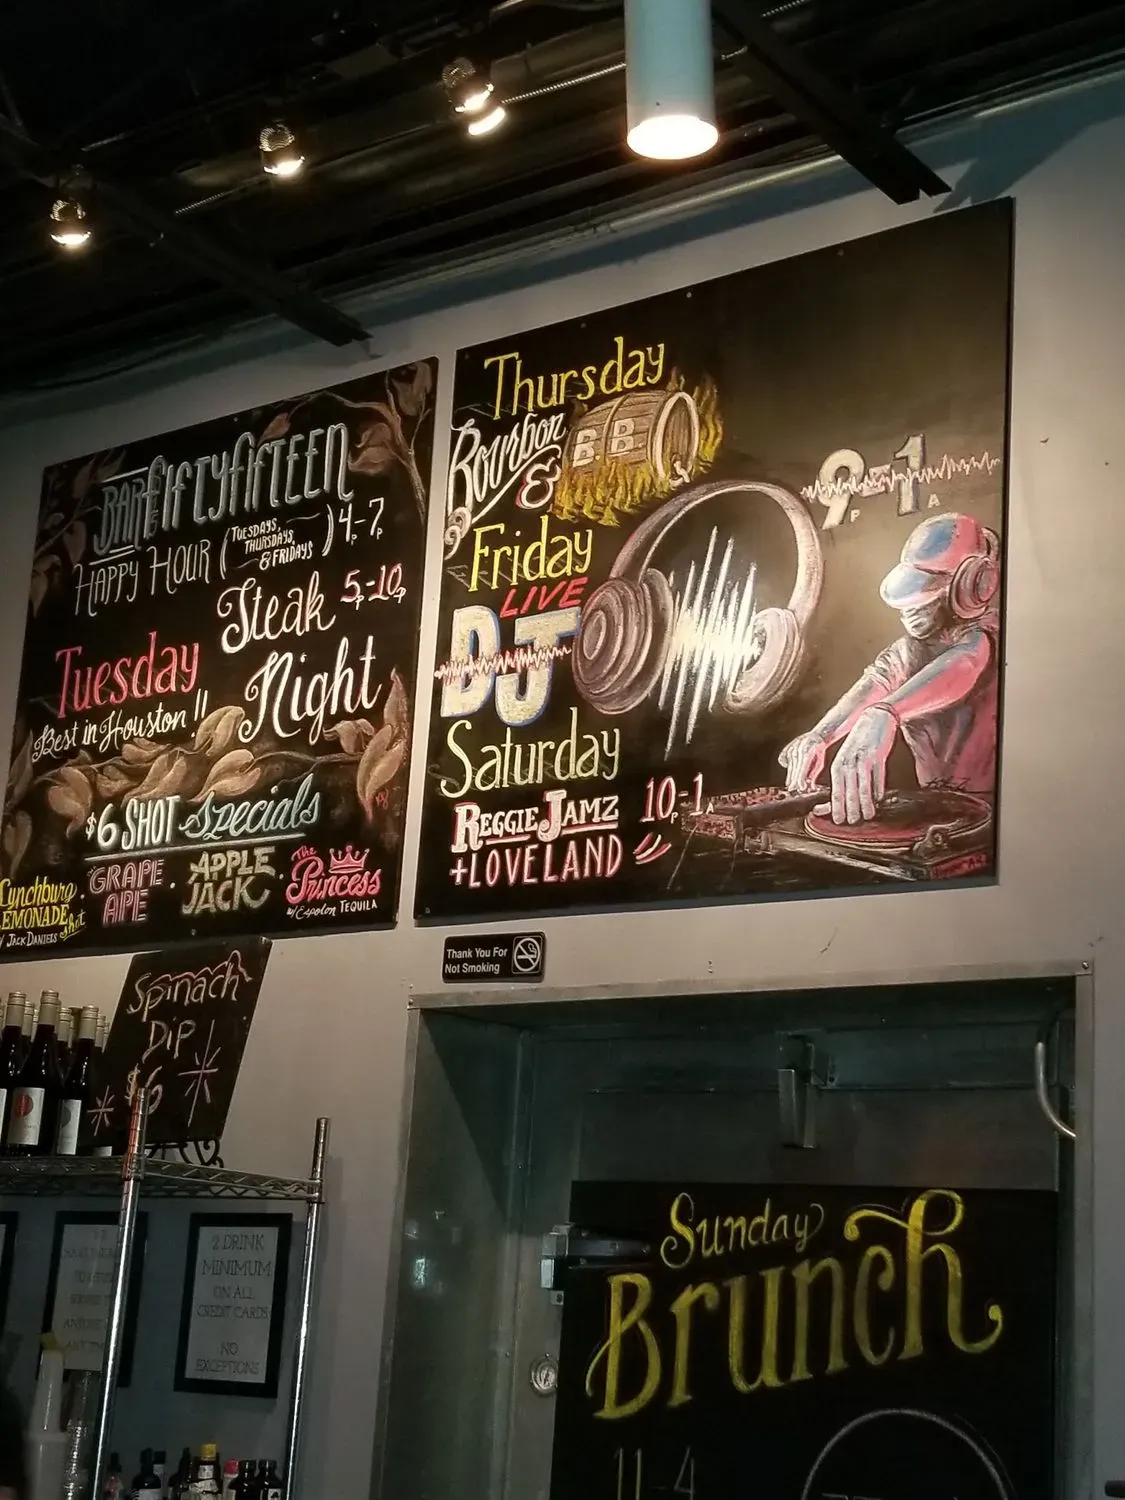 BAR FIFTYFIFTEEN
HAPPY HOUR (TUESDAYS, THURSDAYS, & FRIDAYS) 4P-7P
Steak 5P-10P
Night
Tuesday
Best in Houston!!
$6 SHOT specials
Lynchburg
LEMONADE shot
W/ JACK DANIELS
GRAPE
APE
APPLE
JACK
The
Princess
w/ Espolon TEQUILA
Thursday
Bourbon
&
B.B.
Friday
LIVE
DJ
9P-1A
Saturday
REGGIE JAMZ
+LOVELAND
10P-1A
Thank You For
Not Smoking
Spinach
DIP
$6
2 DRINK
MINIMUM
ON ALL
CREDIT CARDS
NO
EXCEPTIONS
Sunday
Brunch
11-4